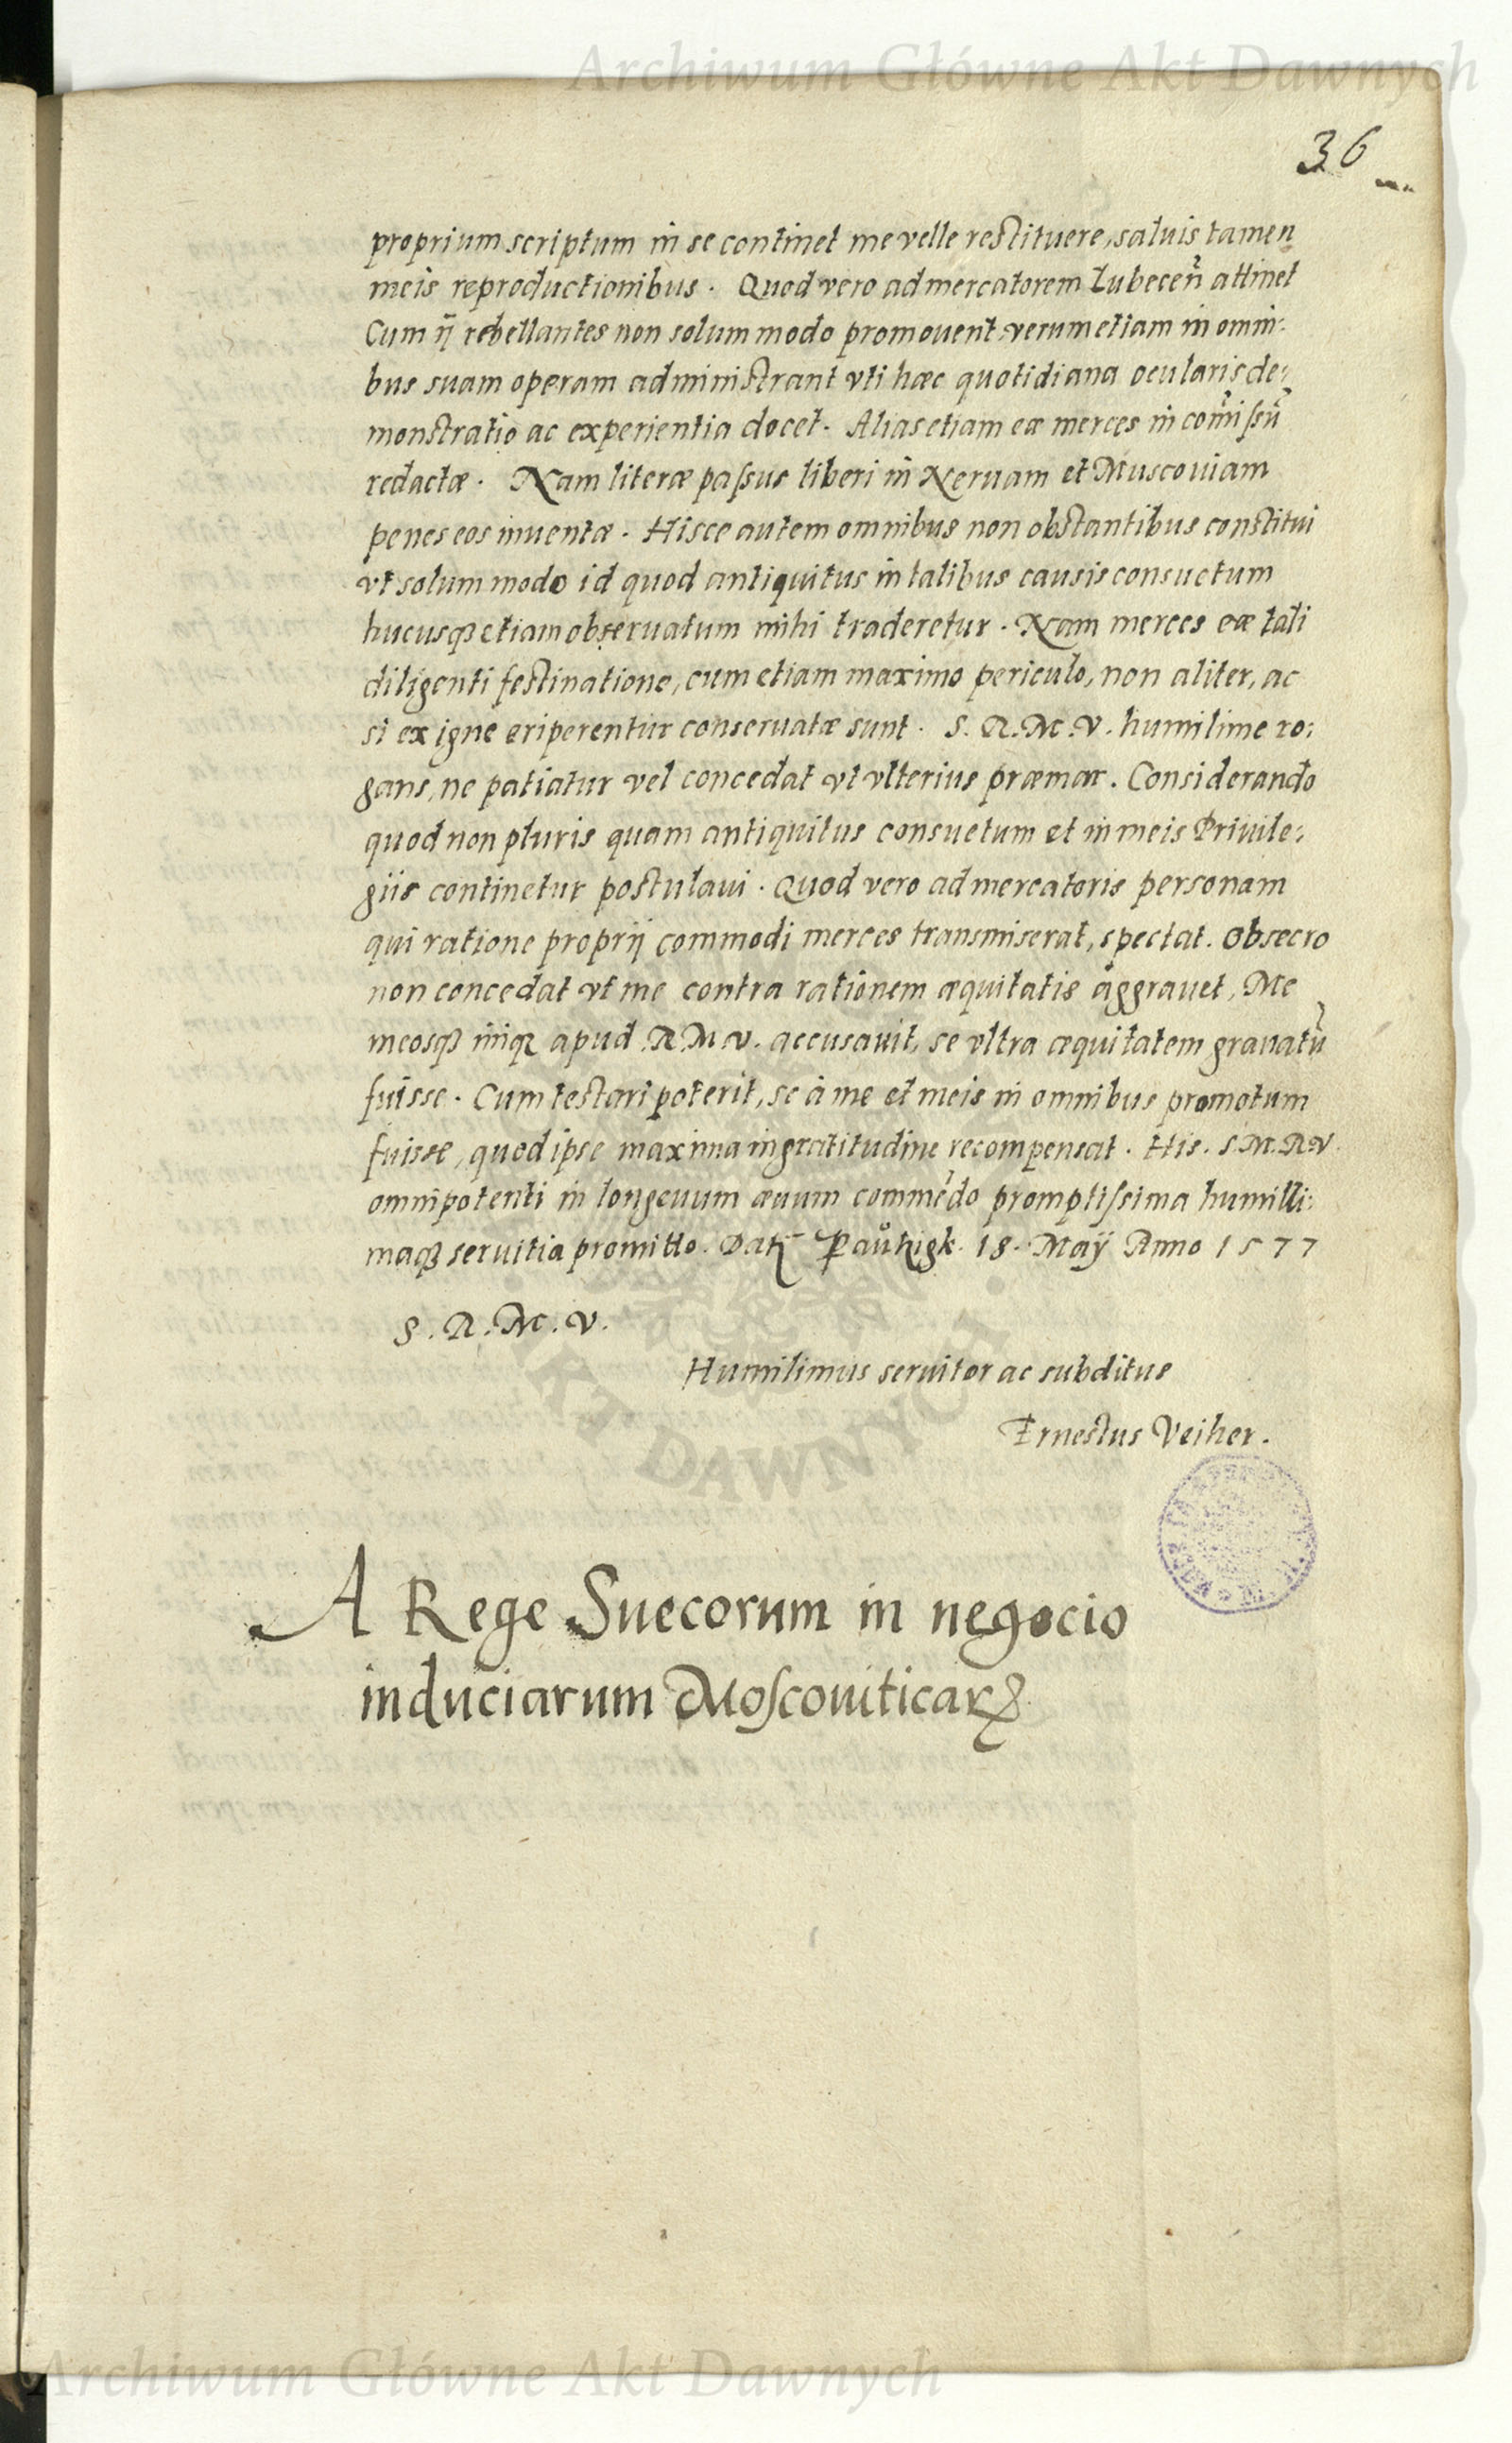 Archiwum Główne Akt Dawnych
36
proprium scriptum in se continet me velle restituere, saluis tamen
meis reproductionibus. Quod vero ad mercatorem Lubecen̄ attinet
Cum ij rebellantes non solum modo promouent verum etiam in omni:
bus suam operam administrant vti hæc quotidiana ocularis de:
monstratio ac experientia docet. Alias etiam eæ merces in com̄issū
redactæ. Nam literæ paſsus liberi in Neruam et Muscouiam
penes eos inuentæ. Hisce autem omnibus non obstantibus constitui
vt solum modo id quod antiquitus in talibus causis consuetum
hucusqꝫ etiam obseruatum mihi traderetur. Nam merces eæ tali
diligenti festinatione, cum etiam maximo periculo, non aliter, ac
si ex igne eriperentur conseruatæ sunt. S. R. M. V. humilime ro:
gans, ne patiatur vel concedat vt vlterius præmar. Considerando
quod non pluris quam antiquitus consuetum et in meis Priuile:
giis continetur postulaui. Quod vero ad mercatoris personam
qui ratione proprij commodi merces transmiserat, spectat. Obsecro
non concedat vt me contra rationem æquitatis aggrauet, Me
meosqꝫ apud R. M. V. accusauit, se vltra æquitatem grauatū
fuisse. Cum testari poterit, se à me et meis in omnibus promotum
fuisse, quod ipse maxima ingratitudine recompensat. His. S. M. R. V.
omnipotenti in longeuum æuum commēdo promptiſsima humilli:
maqꝫ seruitia promitto. Dat̄ Pautzigk. 18. Maÿ Anno 1577
S. R. M. V.
Humilimus seruitor ac subditus
Ernestus Veiher.
A Rege Suecorum in negocio
induciarum Moſcouiticarꝝ
AKT DAWNYCH
Archiwum Główne Akt Dawnych